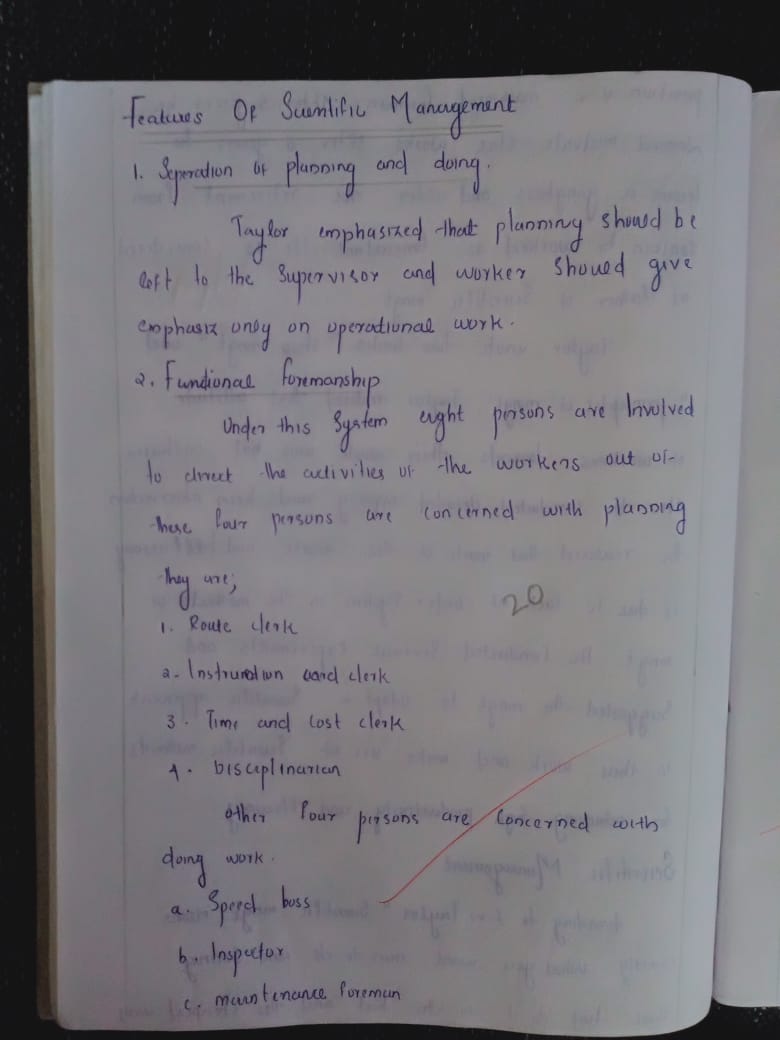 Features Of Scientific Management
1. Seperation of planning and doing.
Taylor emphasized that planning should be
left to the Supervisor and worker should give
emphasiz only on operational work.
2. Functional foremanship
Under this System eight persons are Involved
to direct the activities of the workers out of
these four persons are concerned with planning
they are;
20
1. Route clerk
2. Instruction card clerk
3. Time and cost clerk
4. Disciplinarian
other four persons are concerned with
doing work.
a. Speed boss
b. Inspector
c. maintenance foreman